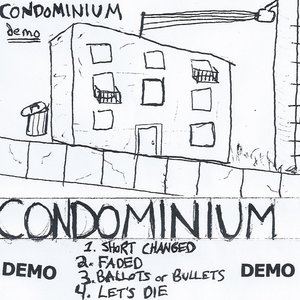 CONDOMINIUM
demo
CONDOMINIUM
1. SHORT CHANGED
2. FADED
3. BALLOTS or BULLETS
4. LET'S DIE
DEMO
DEMO